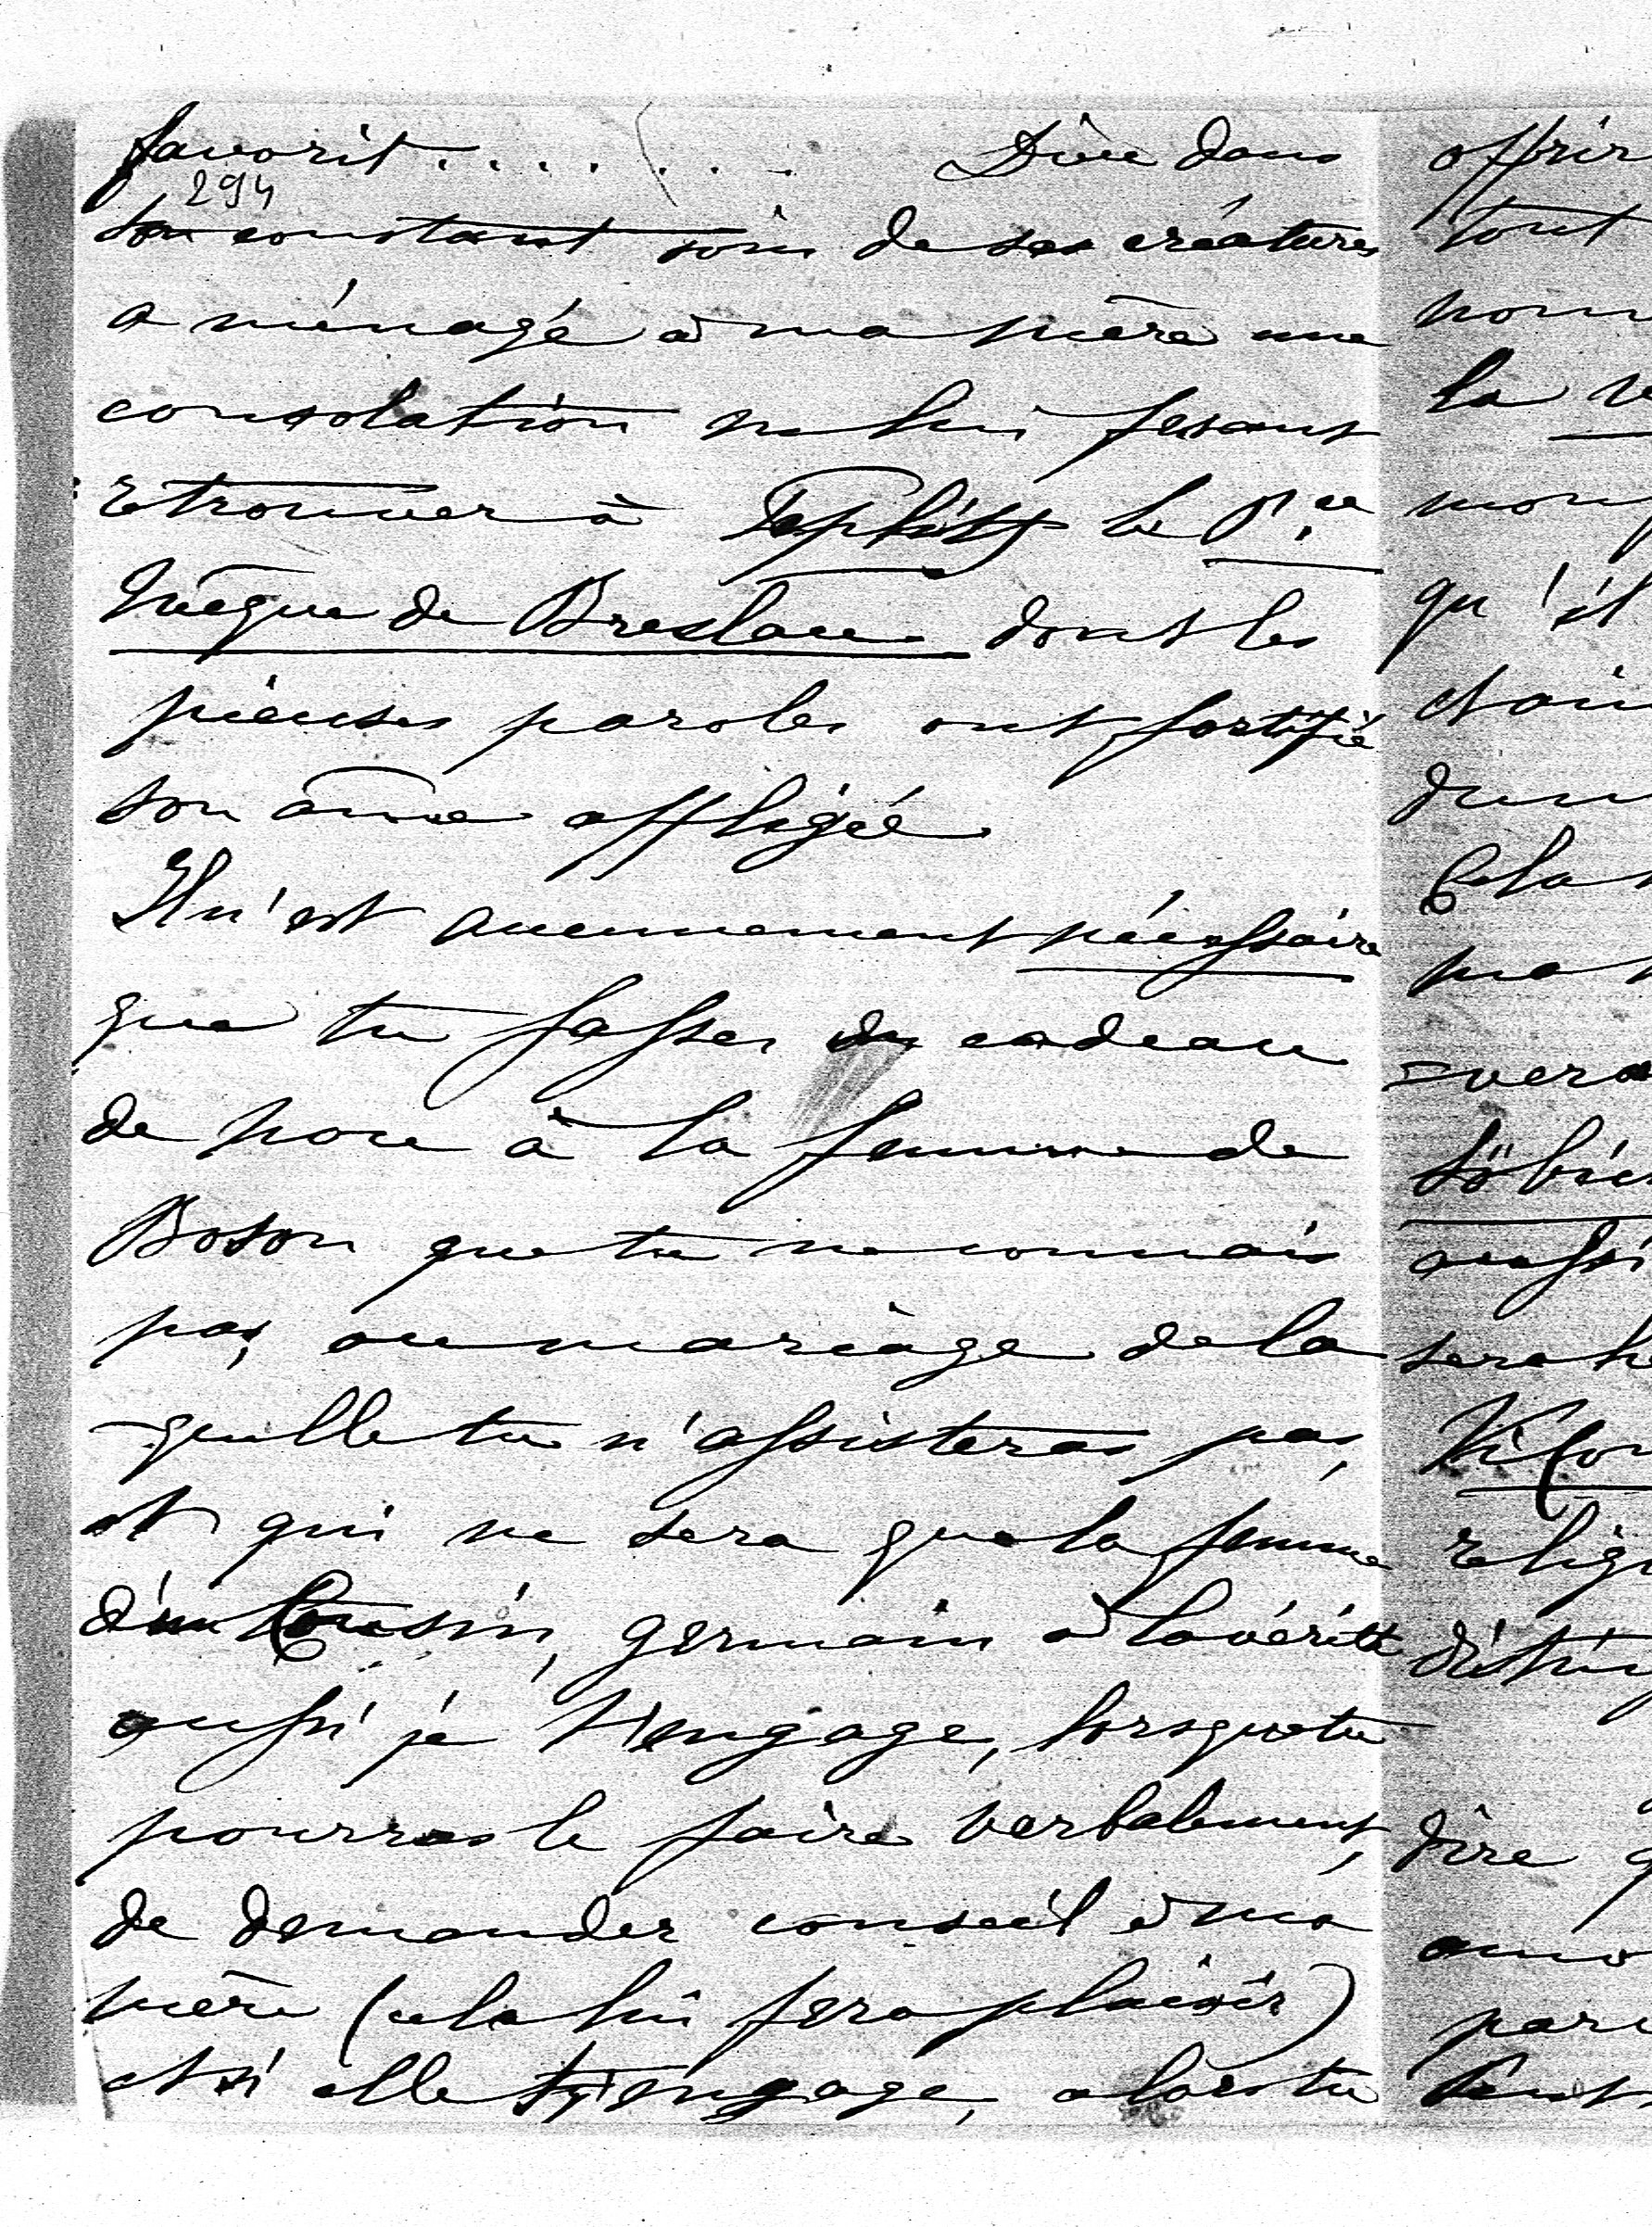 favorit . . . . . . . Dieu dans
294
son constant soin de ses créatures
a ménagé à ma mère une
consolation en lui fesant
retrouver à Teplitz le P.ce
Evêque de Breslau dont les
pieuses paroles ont fortifié
son âme affligée
Il n'est aucunement nécessaire
que tu fasses un cadeau
de noce à la femme de
Boson que tu ne connais
pas, au mariage de la
quelle tu n'assisteras pas,
et qui ne sera que la femme
d'un Cousin, germain à la vérité
aussi je t'engage, lorsque tu
pourras le faire verbalement,
de demander conseil à ma
mère (cela lui fera plaisir)
et si elle t'y engage, alors tu
offrir
tout
la
qu'il
Cela
=vera
aussi
sera
dire